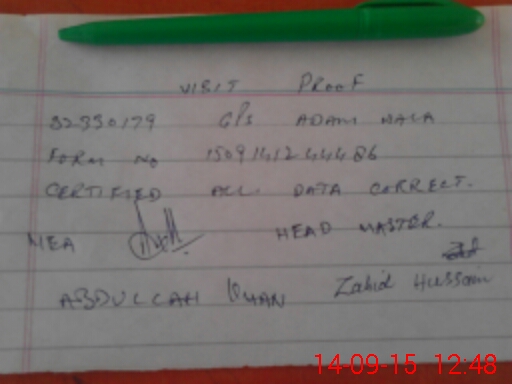 VISIT PROOF
32330179 GPS ADAM WALA
FORM NO 15091412444486
CERTIFIED ALL DATA CORRECT.
MEA HEAD MASTER.
ABDULLAH KHAN Zahid Hussain
14-09-15 12:48